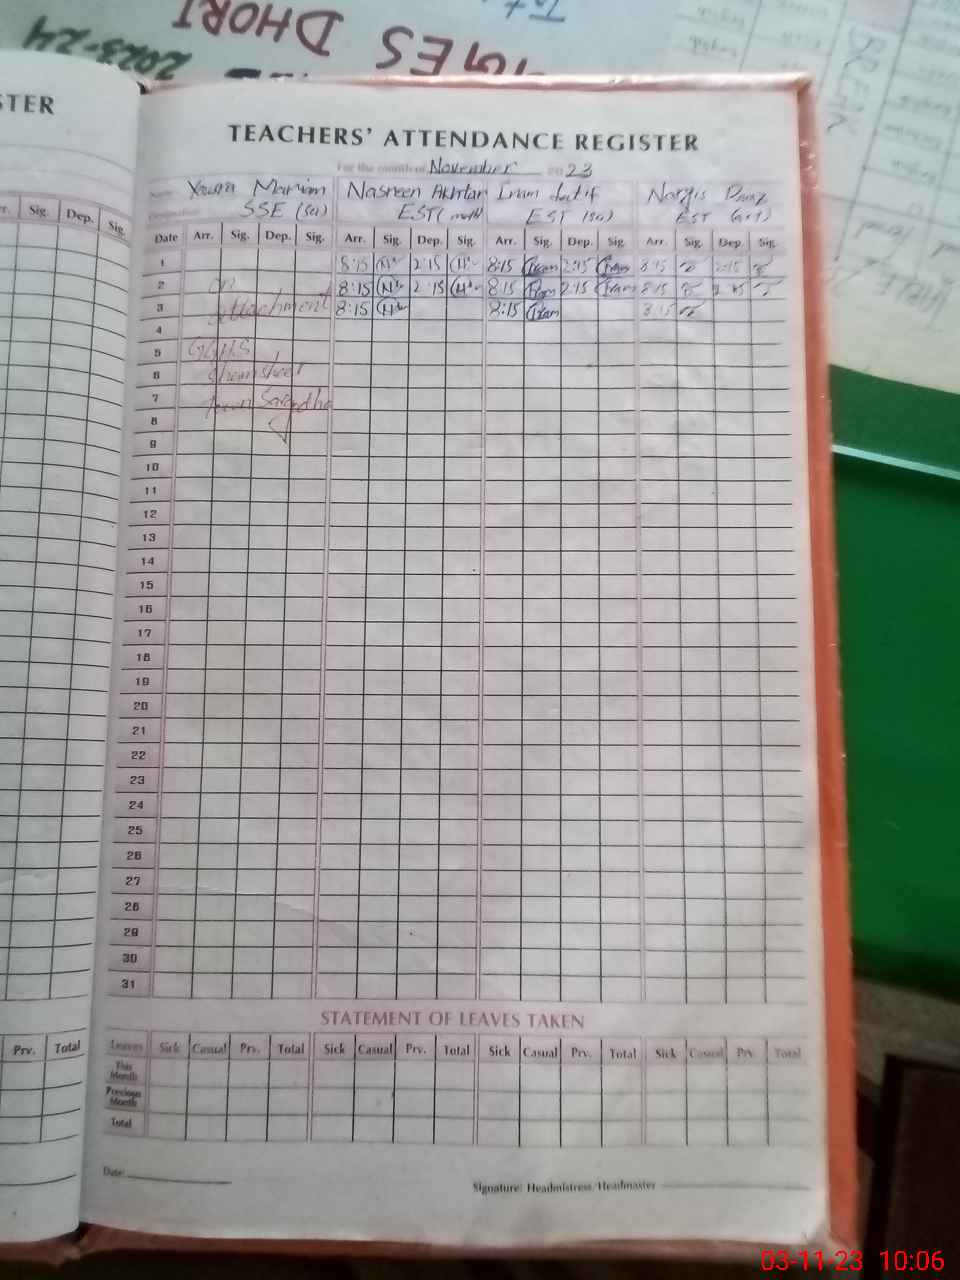 2023-24
GGES DHORI
STER
TEACHERS' ATTENDANCE REGISTER
For the month of November 2023
Name Mariam Nasreen Akhtar Iram Nargis
Designation SSE (Sci) EST (math) EST (Sci) EST
r. Sig. Dep. Sig.
Date Arr. Sig. Dep. Sig. Arr. Sig. Dep. Sig. Arr. Sig. Dep. Sig. Arr. Sig. Dep. Sig.
1 8:15 2:15 8:15 Iram 2:15 Iram 8:15 2:15
2 on 8:15 2:15 8:15 Iram 2:15 Iram 8:15 2:15
3 Attachment 8:15 8:15 Iram 8:15
4
5 GGHS
6
7 Town Sargodha
8
9
10
11
12
13
14
15
16
17
18
19
20
21
22
23
24
25
26
27
28
29
30
31
STATEMENT OF LEAVES TAKEN
Prv. Total
Leaves Sick Casual Prv. Total Sick Casual Prv. Total Sick Casual Prv. Total Sick Casual Prv. Total
This Month
Previous Month
Total
Date:
Signature: Headmistress/Headmaster
03-11-23 10:06